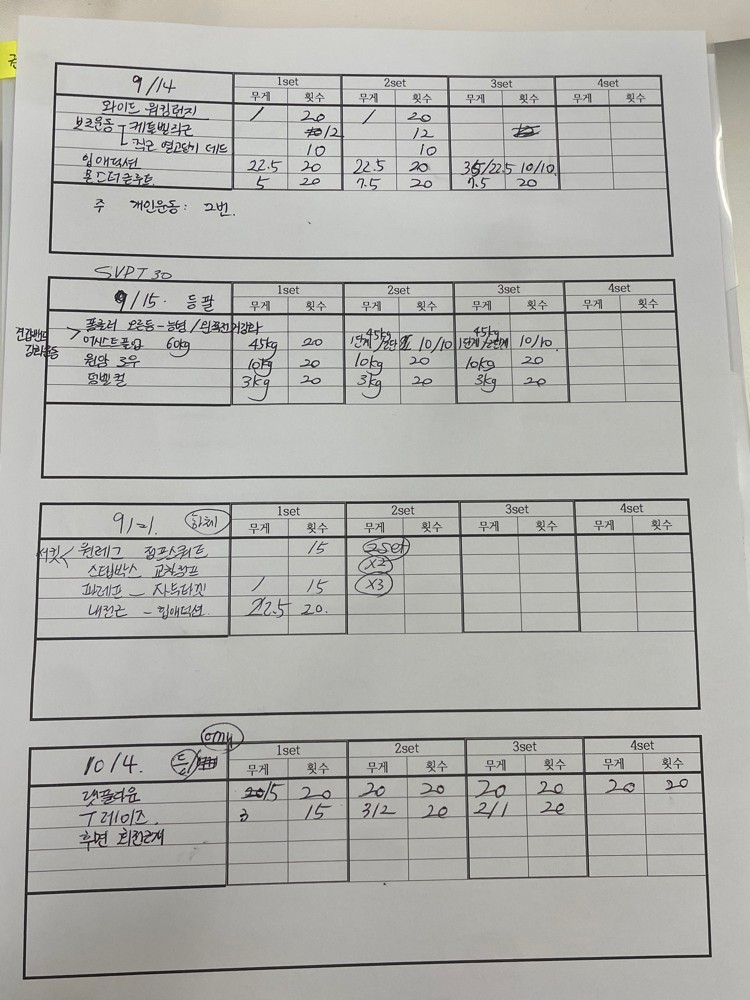 9/14 1set 2set 3set 4set
무게 횟수 무게 횟수 무게 횟수 무게 횟수
와이드 워킹런지 / 20 / 20
보조운동 케틀벨 12 12
10 10
힙애덕션 22.5 20 22.5 20 35/22.5 10/10
몬스터글루트 5 20 7.5 20 7.5 20
주 개인운동: 2번.
SVPT 30
9/15. 등팔 1set 2set 3set 4set
무게 횟수 무게 횟수 무게 횟수 무게 횟수
견갑밴드 풀오버 오른등-능형/
강화운동 어시스트풀업 60kg 45kg 20 45kg 1단계/2단 10/10 45kg 1단계/2단계 10/10.
원암 로우 10kg 20 10kg 20 10kg 20
덤벨컬 3kg 20 3kg 20 3kg 20
9/21. 하체 1set 2set 3set 4set
무게 횟수 무게 횟수 무게 횟수 무게 횟수
서킷< 원레그 점프스쿼트 15 2set
스텝박스 교차점프 X2
파레프 - 사두타겟 / 15 X3
내전근 - 힙애덕션. 22.5 20.
10/4. 등/ 1set 2set 3set 4set
무게 횟수 무게 횟수 무게 횟수 무게 횟수
랫풀다운 15 20 20 20 20 20 20 20
T레이즈. 3 15 3/2 20 2/1 20
후면 회전근개